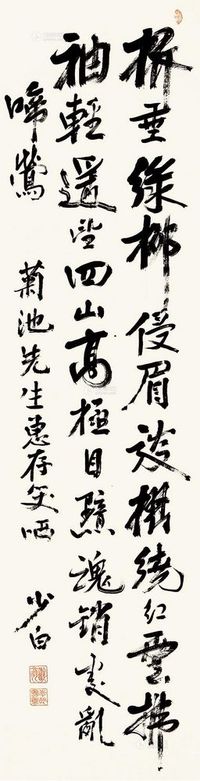 垂綠柳侵眉淡繞紅雲拂
袖輕望四山高極目黯魂銷處亂
啼鶯
菊池先生惠存笑哂
少白